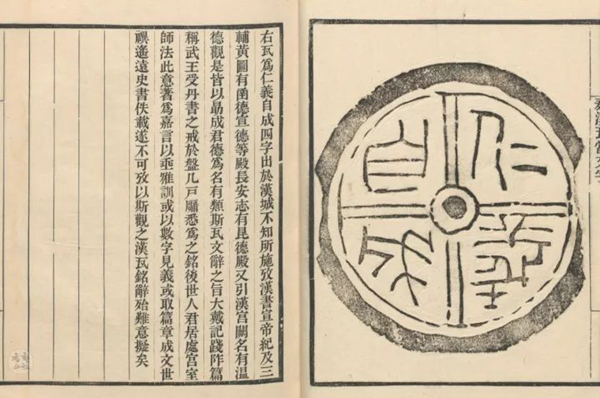 仁義
自成
右瓦爲仁義自成四字出於漢城不知所施攷漢書宣帝紀及三
輔黃圖有圅德宣德等殿長安志有昆德殿又引漢宫闕名有溫
德觀是皆以勗成君德爲名有類斯瓦文辭之旨大戴記踐阼篇
稱武王受丹書之戒於盤几戸牖悉爲之銘後世人君居處宫室
師法此意著爲嘉言以垂雅訓或以數字見義或取篇章成文世
禩遙遠史書佚載遂不可攷以斯觀之漢瓦銘辭殆難意擬矣